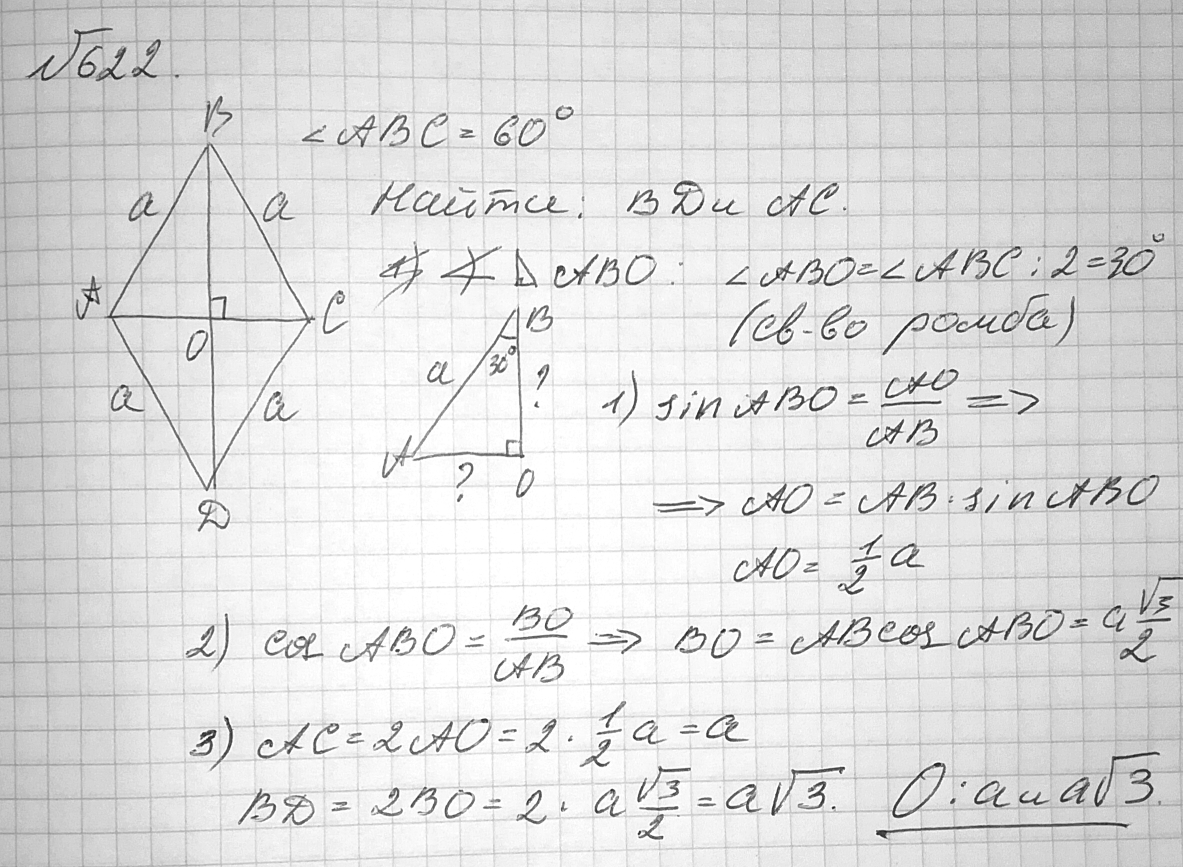 №622.
B
∠ABC = 60°
a a
Найти: BD и AC.
ΔABO: ∠ABO = ∠ABC : 2 = 30°
(св-во ромба)
A C
O
B
a 30° ?
a a
A ? O
D
1) sin ABO = AO/AB =>
=> AO = AB·sin ABO
AO = 1/2 a
2) cos ABO = BO/AB => BO = AB cos ABO = a √3/2
3) AC = 2AO = 2 · 1/2 a = a
BD = 2BO = 2 · a √3/2 = a√3.
О: a и a√3.